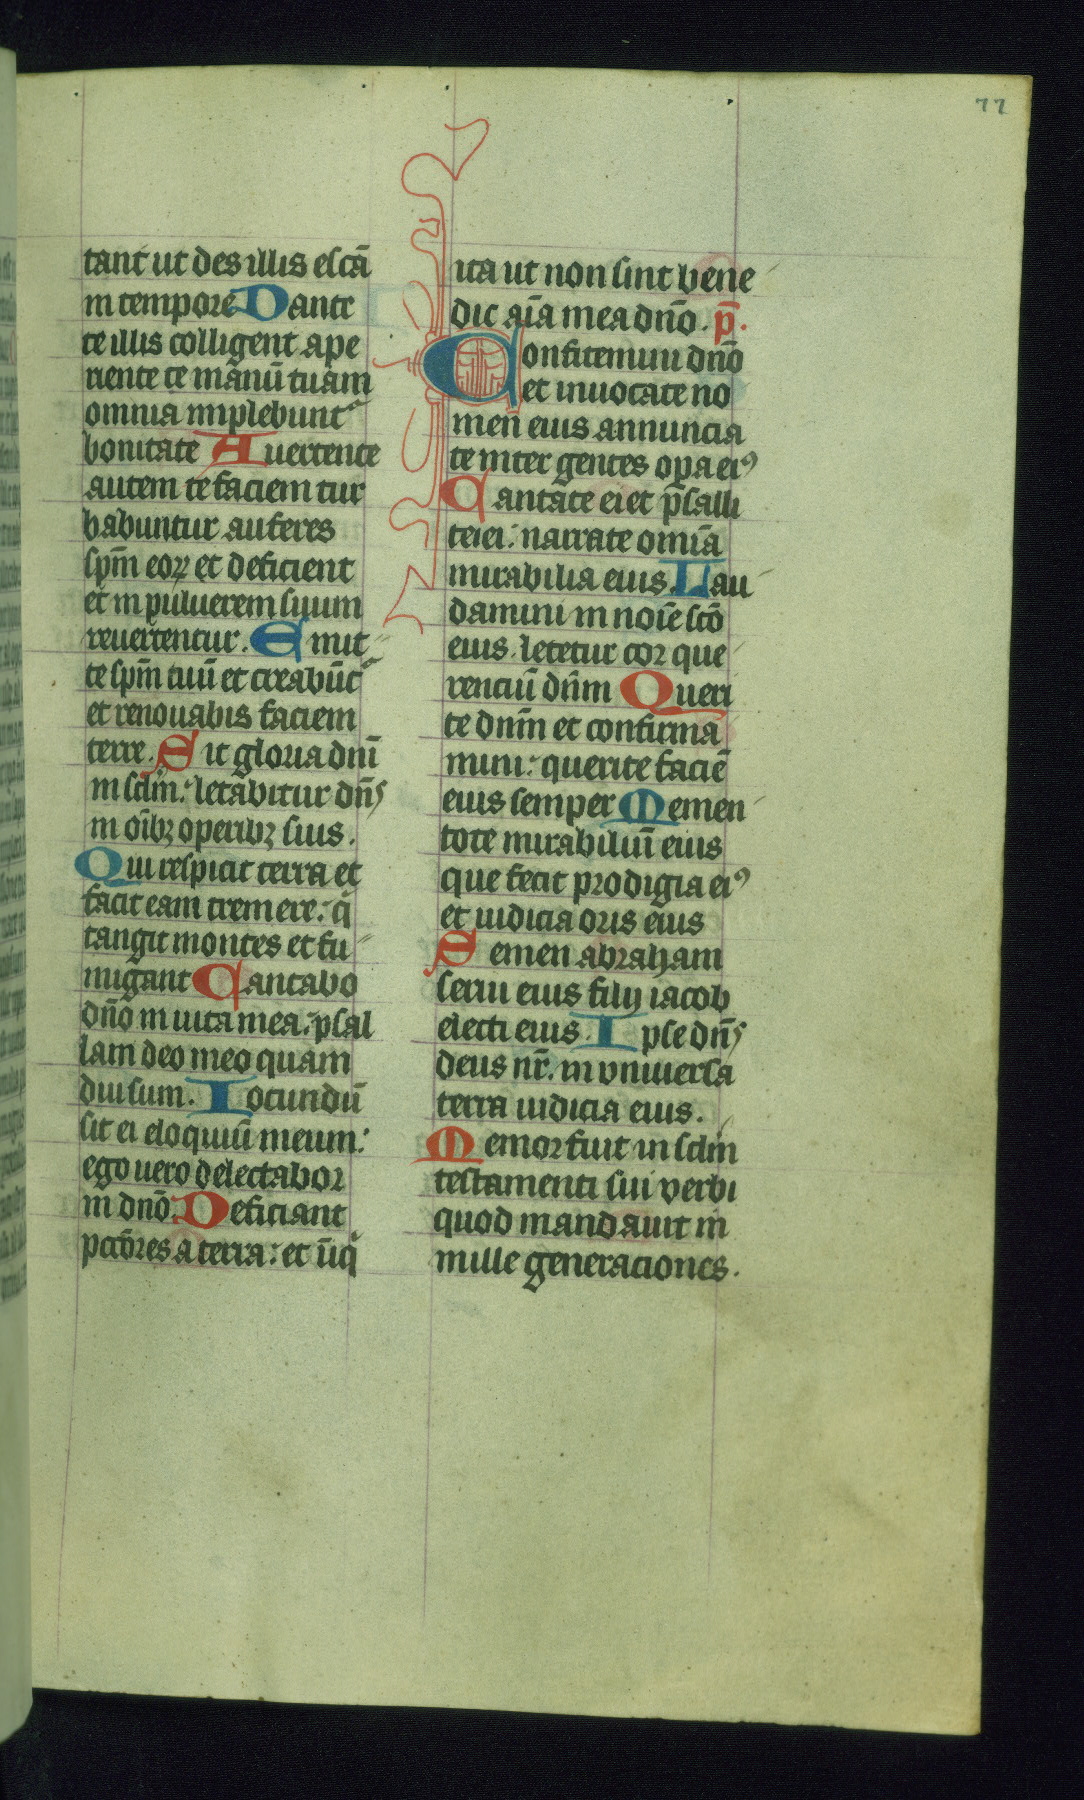 77
tant ut des illis escā
in tempore Dante
te illis colligent ape
riente te manū tuam
omnia inplebunt͛
bonitate Auertente
autem te faciem tur
babuntur auferes
sp̄m eoꝝ et deficient
et in puluerem suum
reuertentur. Emit
te sp̄m tuū et creabūt͛
et renouabis faciem
terre. Sit gloria dnī
in sclm̄: letabitur dn̄s
in oībꝫ operibꝫ suis.
Qui respicit terra et
facit eam tremere: q̄
tangit montes et fu
migant Cantabo
dn̄o in uita mea: psal
lam deo meo quam
diu sum. Iocundū
sit ei eloquiū meum:
ego uero delectabor
in dn̄o. Deficiant
pctōres a terra: et īiq̄
ita ut non sint bene
dic aīa mea dn̄o. p̄.
Confitemini dn̄o
et inuocate no
men eius annuncia
te inter gentes oꝑa eiꝰ
Cantate ei et p̄salli
te ei: narrate omīa
mirabilia eius. Lau
damini in noīe sc̄o
eius. letetur cor que
renciū dn̄m Queri
te dnm̄ et confirma
mini: querite faciē
eius semper Memen
tote mirabiliuī eius
que fecit prodigia eiꝰ
et iudicia oris eius
Semen abraham
serui eius filij iacob
electi eius. Ipse dn̄s
deus nr̄. in vniuersa
terra iudicia eius.
Memor fuit in sclm̄
testamenti sui verbi
quod mandauit in
mille generaciones.